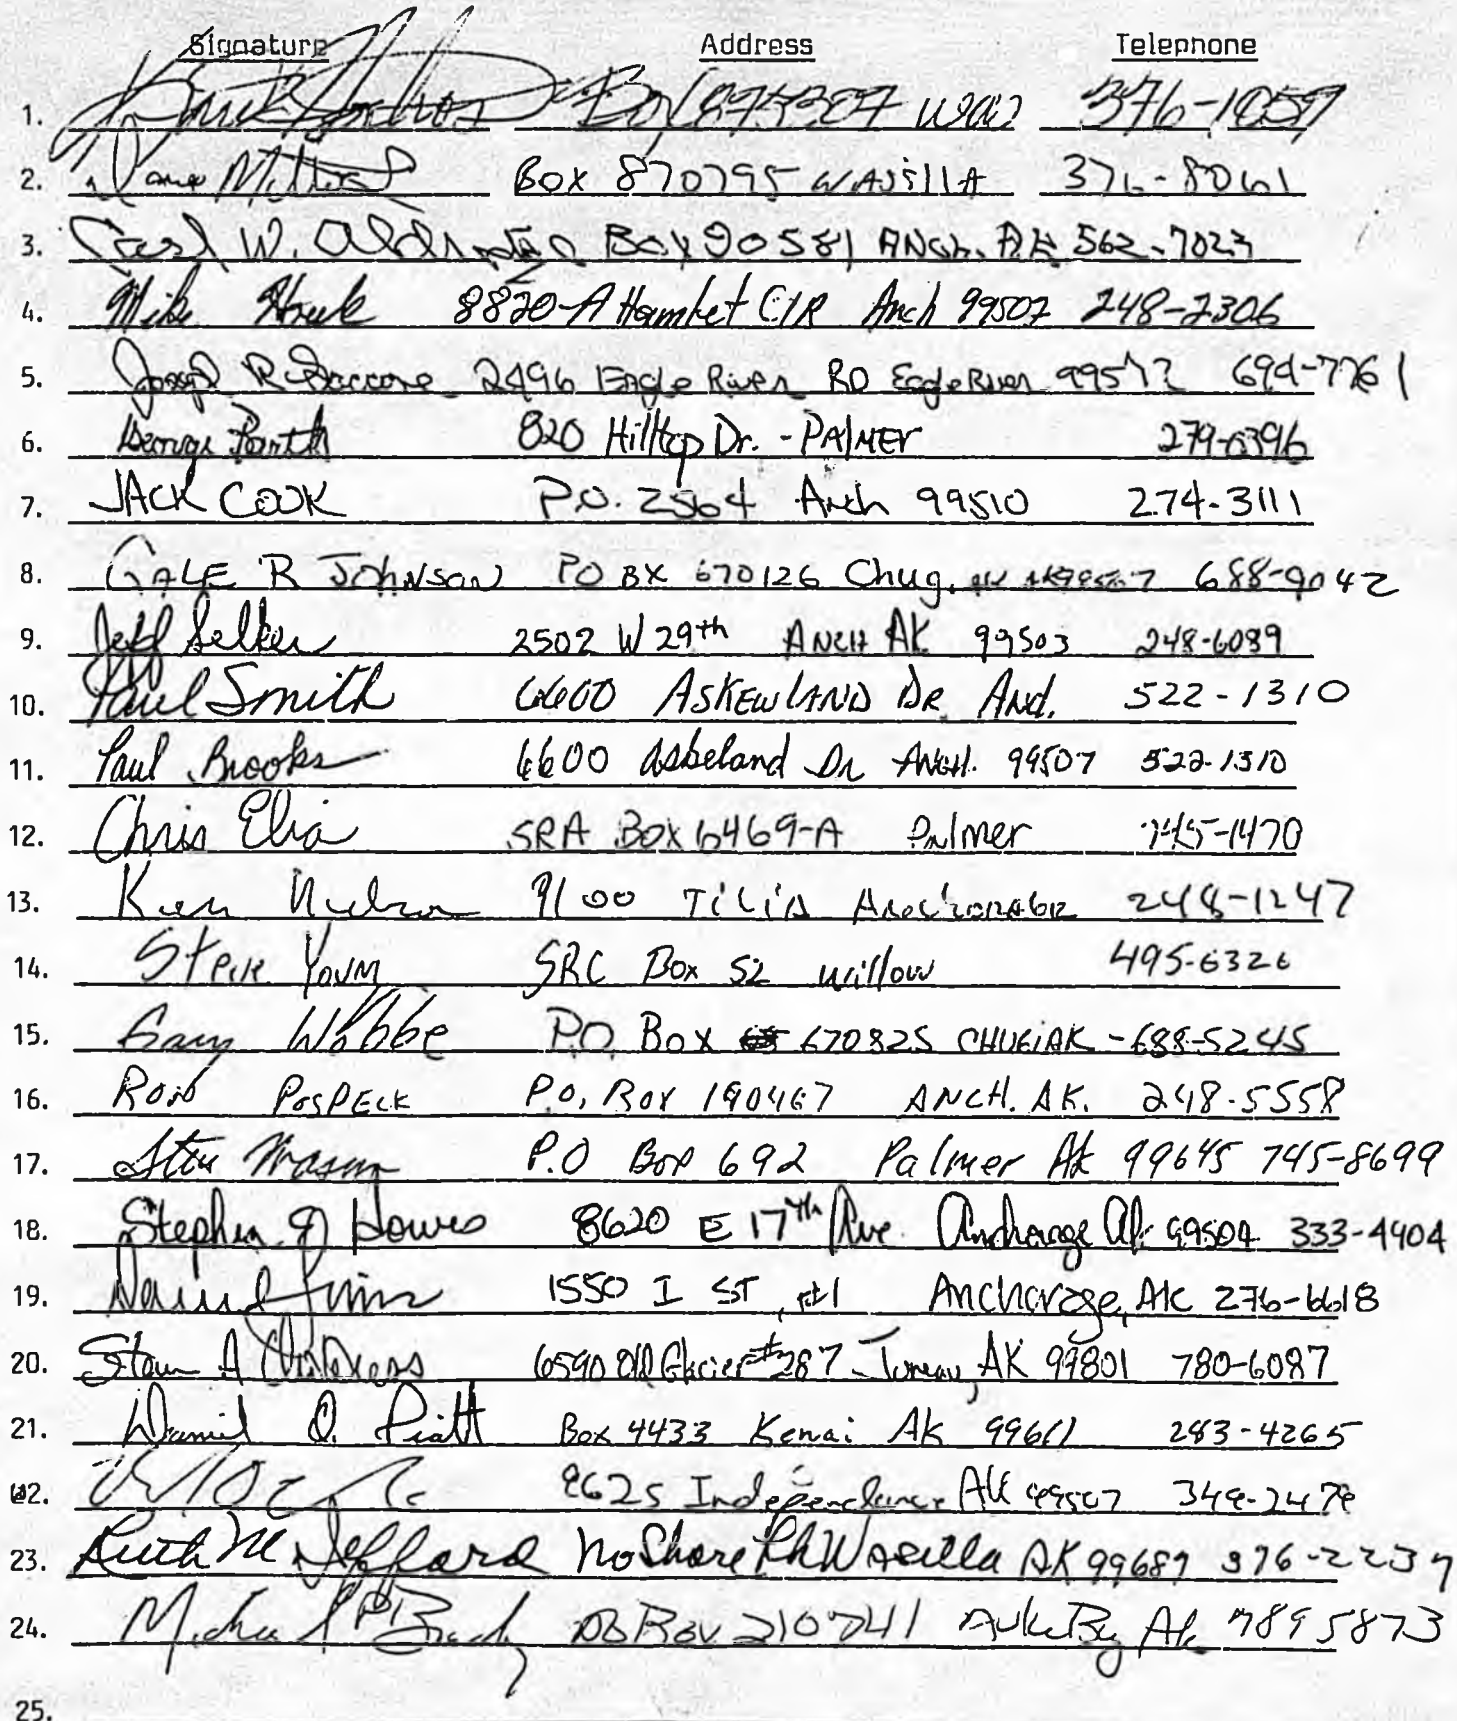 Signature Address Telephone
1. Box 875307 Was 376-1059
2. Box 870795 WASIllA 376-8061
3. Carl W. Box 90581 ANch. AK 562-7023
4. Mike Houk 8820-A Hamlet CIR Anch 99507 248-2306
5. Joseph R 2496 Eagle River RD Eagle River 99577 694-7761
6. George 820 Hilltop Dr. - PAlMER 279-0396
7. JACK COOK P.O. 2564 Anch 99510 274-3111
8. GALE R JOHNSON PO BX 670126 Chug. 688-9042
9. Jeff Selker 2502 W 29th ANCH AK 99503 248-6089
10. Paul Smith 6600 ASKEWLAND DR. Anch. 522-1310
11. Paul Brooks 6600 Askeland Dr ANCH. 99507 522-1310
12. Chris Elia SRA BOX 6469-A Palmer 745-1470
13. Ken Nelson 9100 TILIA Anchorage 248-1247
14. Steve SRC Box 52 Willow 495-6326
15. Gary Wobbe P.O. Box 670825 CHUGIAK - 688-5245
16. RON POSPECK P.O. Box 190467 ANCH. AK. 248-5558
17. Steve Mason P.O Box 692 Palmer AK 99645 745-8699
18. Stephen J Howes 8620 E 17th Ave. Anchorage AK 99504 333-4404
19. 1550 I ST, #1 Anchorage, AK 276-6618
20. A 6590 Old Glacier #287 Juneau, AK 99801 780-6087
21. Daniel O. Piatt Box 4433 Kenai AK 99611 283-4265
22. 9625 Independence AK 99507 349-2479
23. Ruth M Jefford No Shore Lk Wasilla AK 99687 376-2237
24. Michael P Brady PO Box 210741 Auke Bay Ak 789 5873
25.